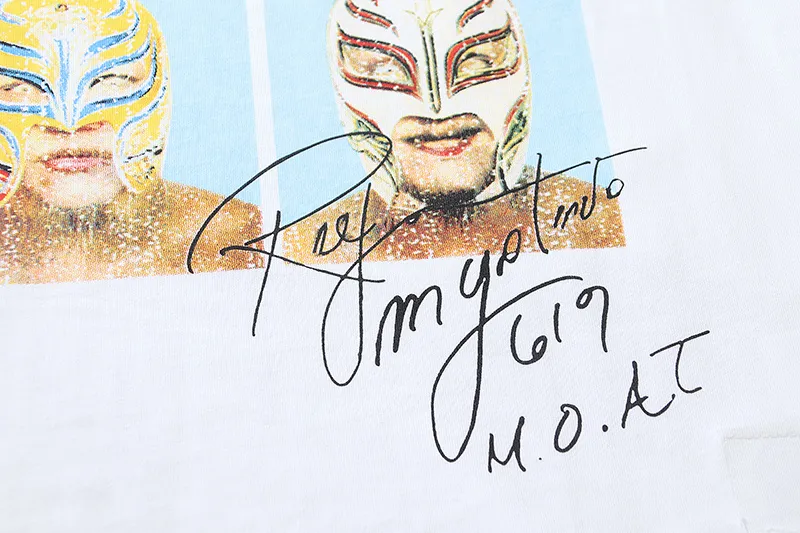 Rey
mysterio
619
M.O.A.T